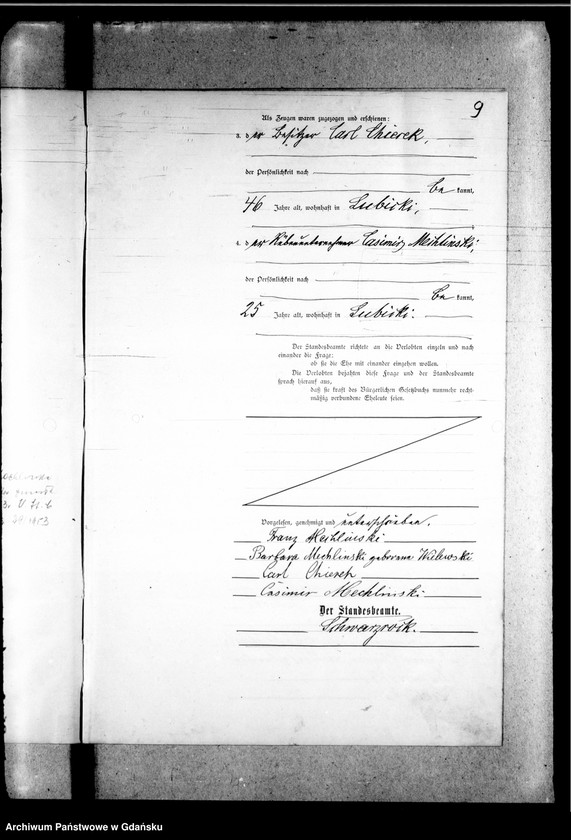 9
Als Zeugen waren zugezogen und erschienen:
3. der Besitzer Carl Chierek,
der Persönlichkeit nach
be kannt,
46 Jahre alt, wohnhaft in Lubicki,
4. der Casimir Mechlinski,
der Persönlichkeit nach
be kannt,
25 Jahre alt, wohnhaft in Lubicki.
Der Standesbeamte richtete an die Verlobten einzeln und nach
einander die Frage:
ob sie die Ehe mit einander eingehen wollen.
Die Verlobten bejahten diese Frage und der Standesbeamte
sprach hierauf aus,
daß sie kraft des Bürgerlichen Gesetzbuchs nunmehr recht-
mäßig verbundene Eheleute seien.
Vorgelesen, genehmigt und unterschrieben.
Franz Mechlinski
Barbara Mechlinski geborene Wilewski
Carl Chierek
Casimir Mechlinski
Der Standesbeamte.
Schwarzrock.
Archiwum Państwowe w Gdańsku